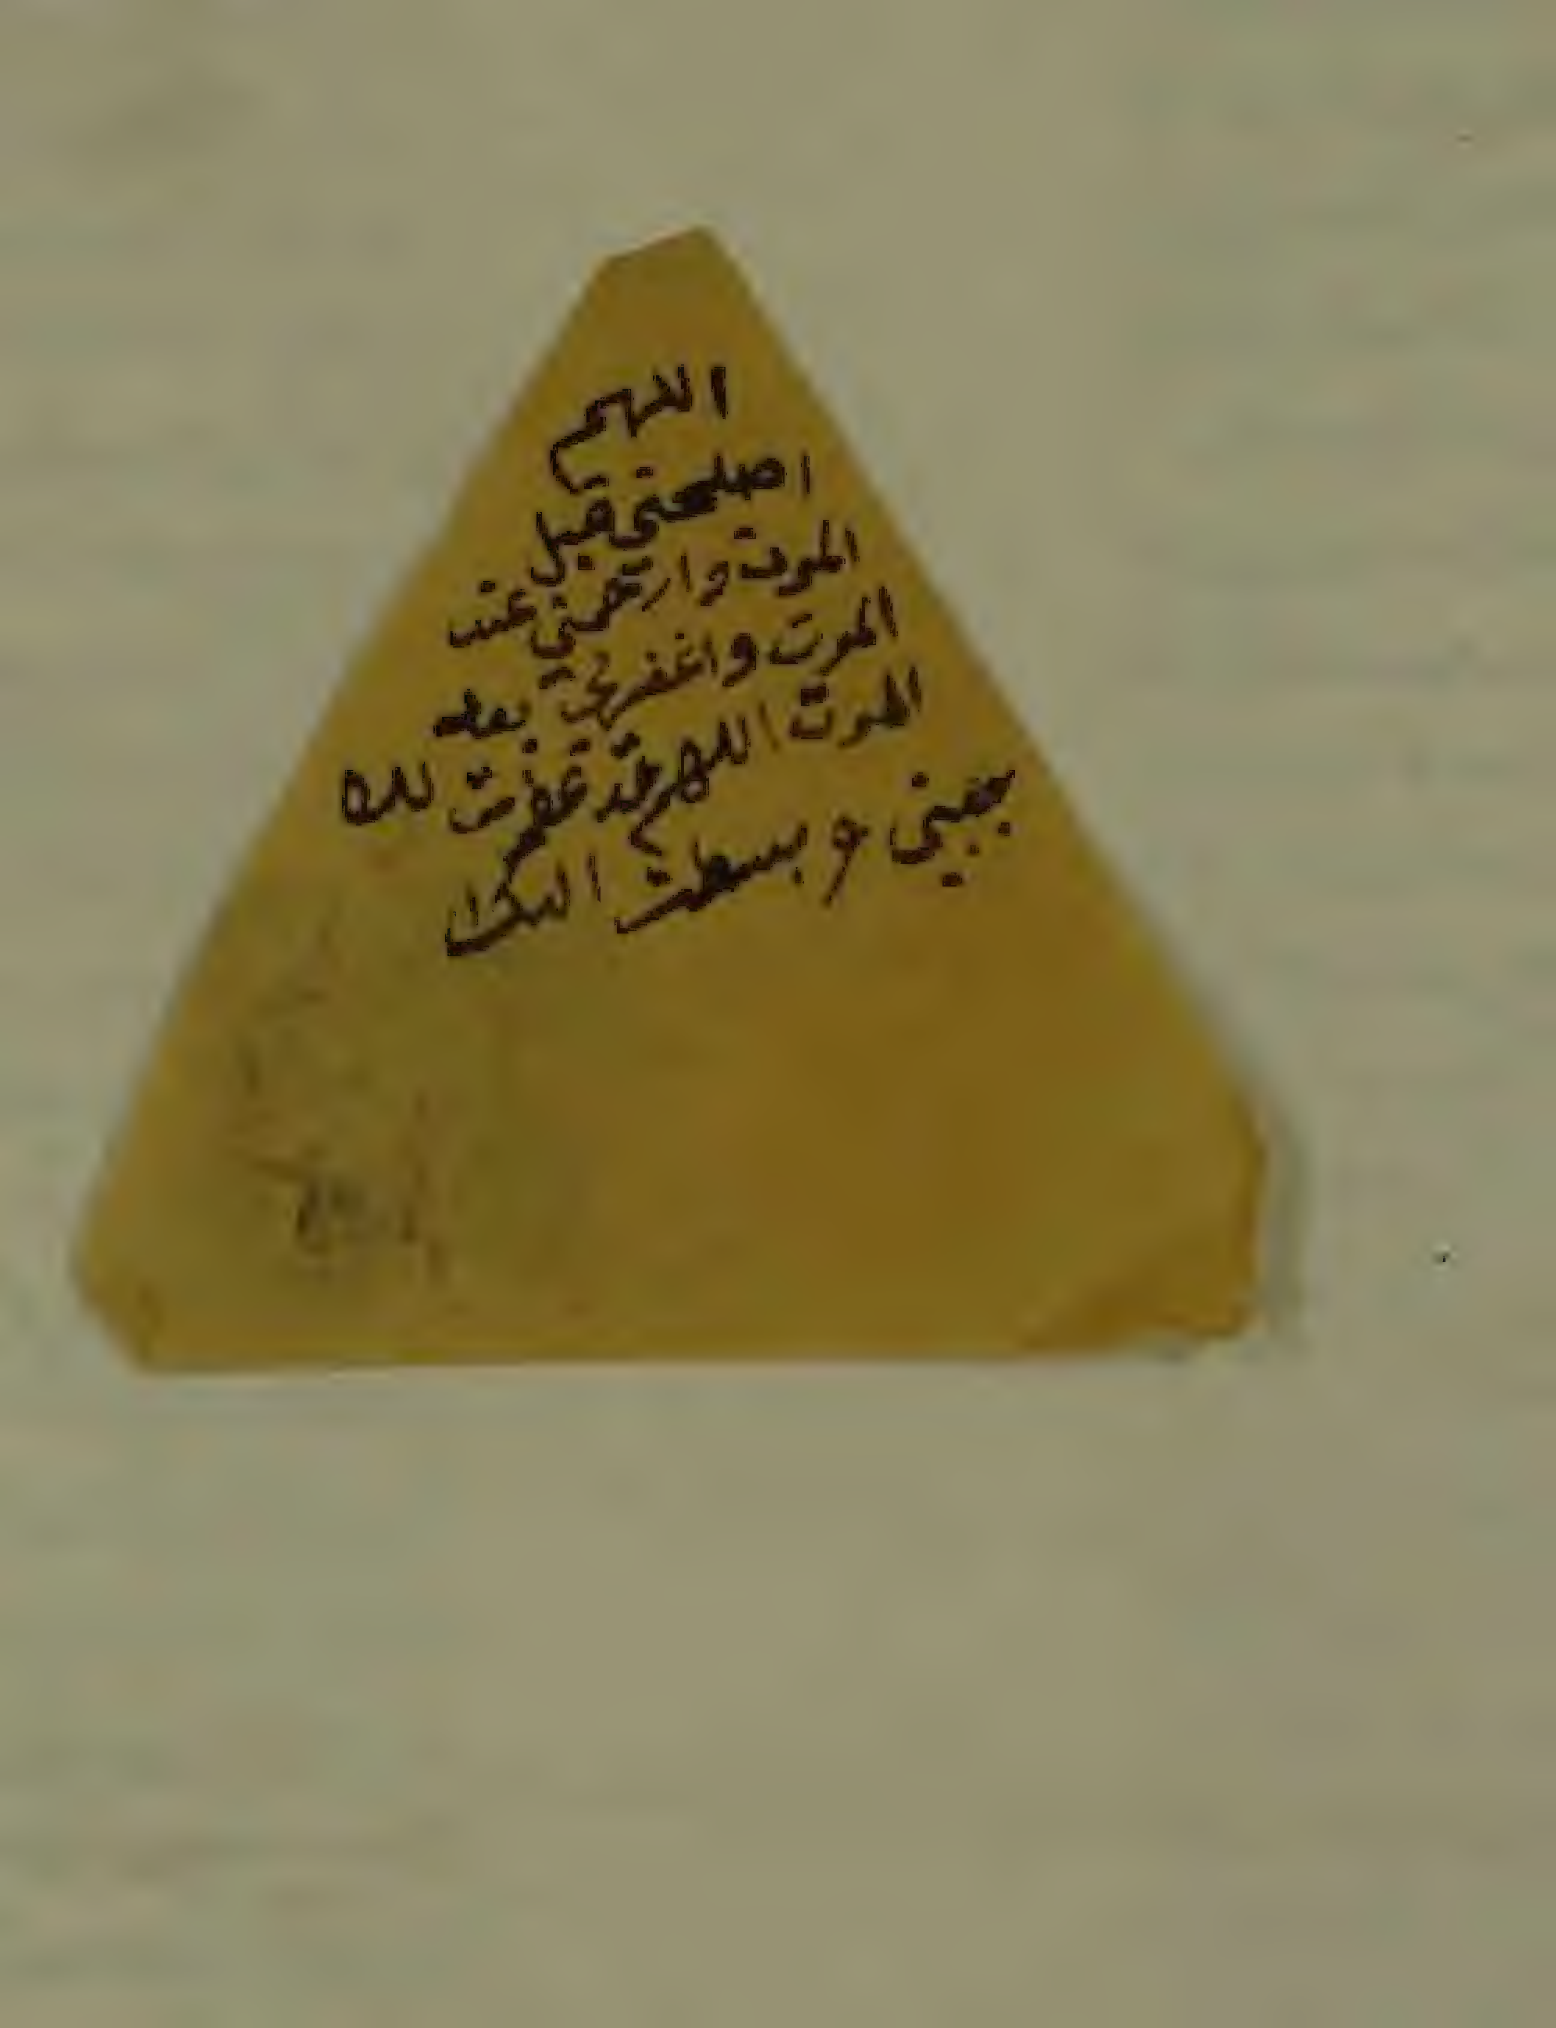 اللهم
اصلحني قبل
الموت وارحمني عند
الموت واغفرلي بعد
الموت اللهم قد عفرت لك
جبيني و بسطت اليك